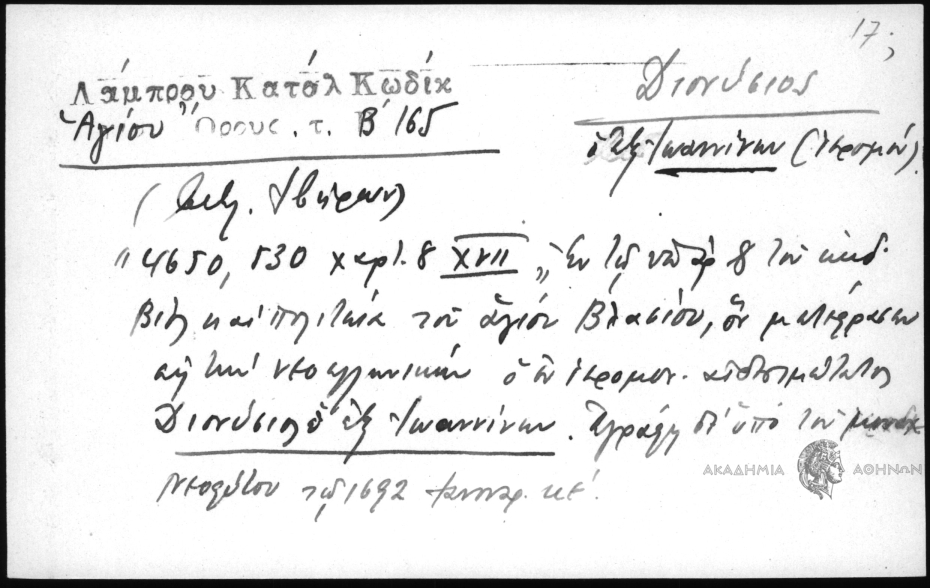 17
Λάμπρου Κατάλ Κωδίκ
Διονύσιος
Ἁγίου Ὄρους. τ. Β' 165
ὁ ἐξ Ἰωαννίνων (ἱερομόν).
(Ἰβήρων)
"4650, 530 χαρτ. 8 XVII „ Ἐν τῷ ὑπ' ἀρ 8 τοῦ
Βίος καὶ πολιτεία τοῦ ἁγίου Βλασίου, ὃν μετέφρασεν
εἰς τὴν νεοελληνικὴν ὁ ἐν ἱερομον.
Διονύσιος ὁ ἐξ Ἰωαννίνων. Ἐγράφη δ' ὑπὸ τοῦ
Νεοφύτου τῷ 1692 κε'.
ΑΚΑΔΗΜΙΑ ΑΘΗΝΩΝ